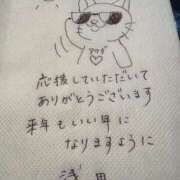 応援していただいて
ありがとうございます
来年もいい年に
なりますように